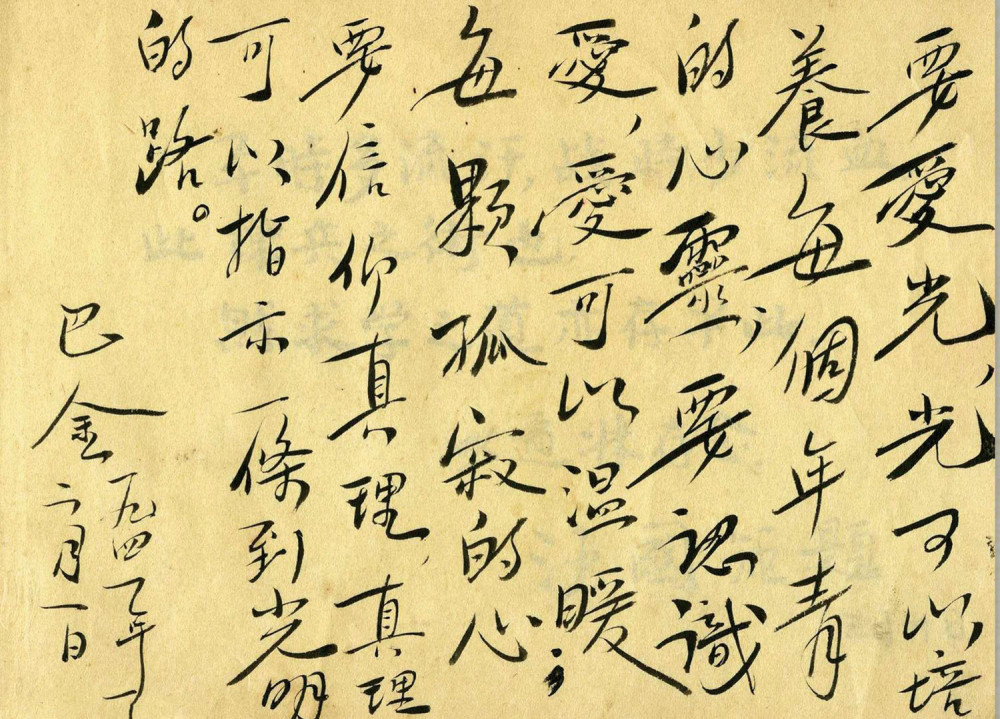 要愛光，光可以培
養每個年青
的心靈；要認識
愛，愛可以溫暖
每顆孤寂的心；
要信仰真理，真理
可以指示一條到光明
的路。
巴金
一九四乙年
二月一日